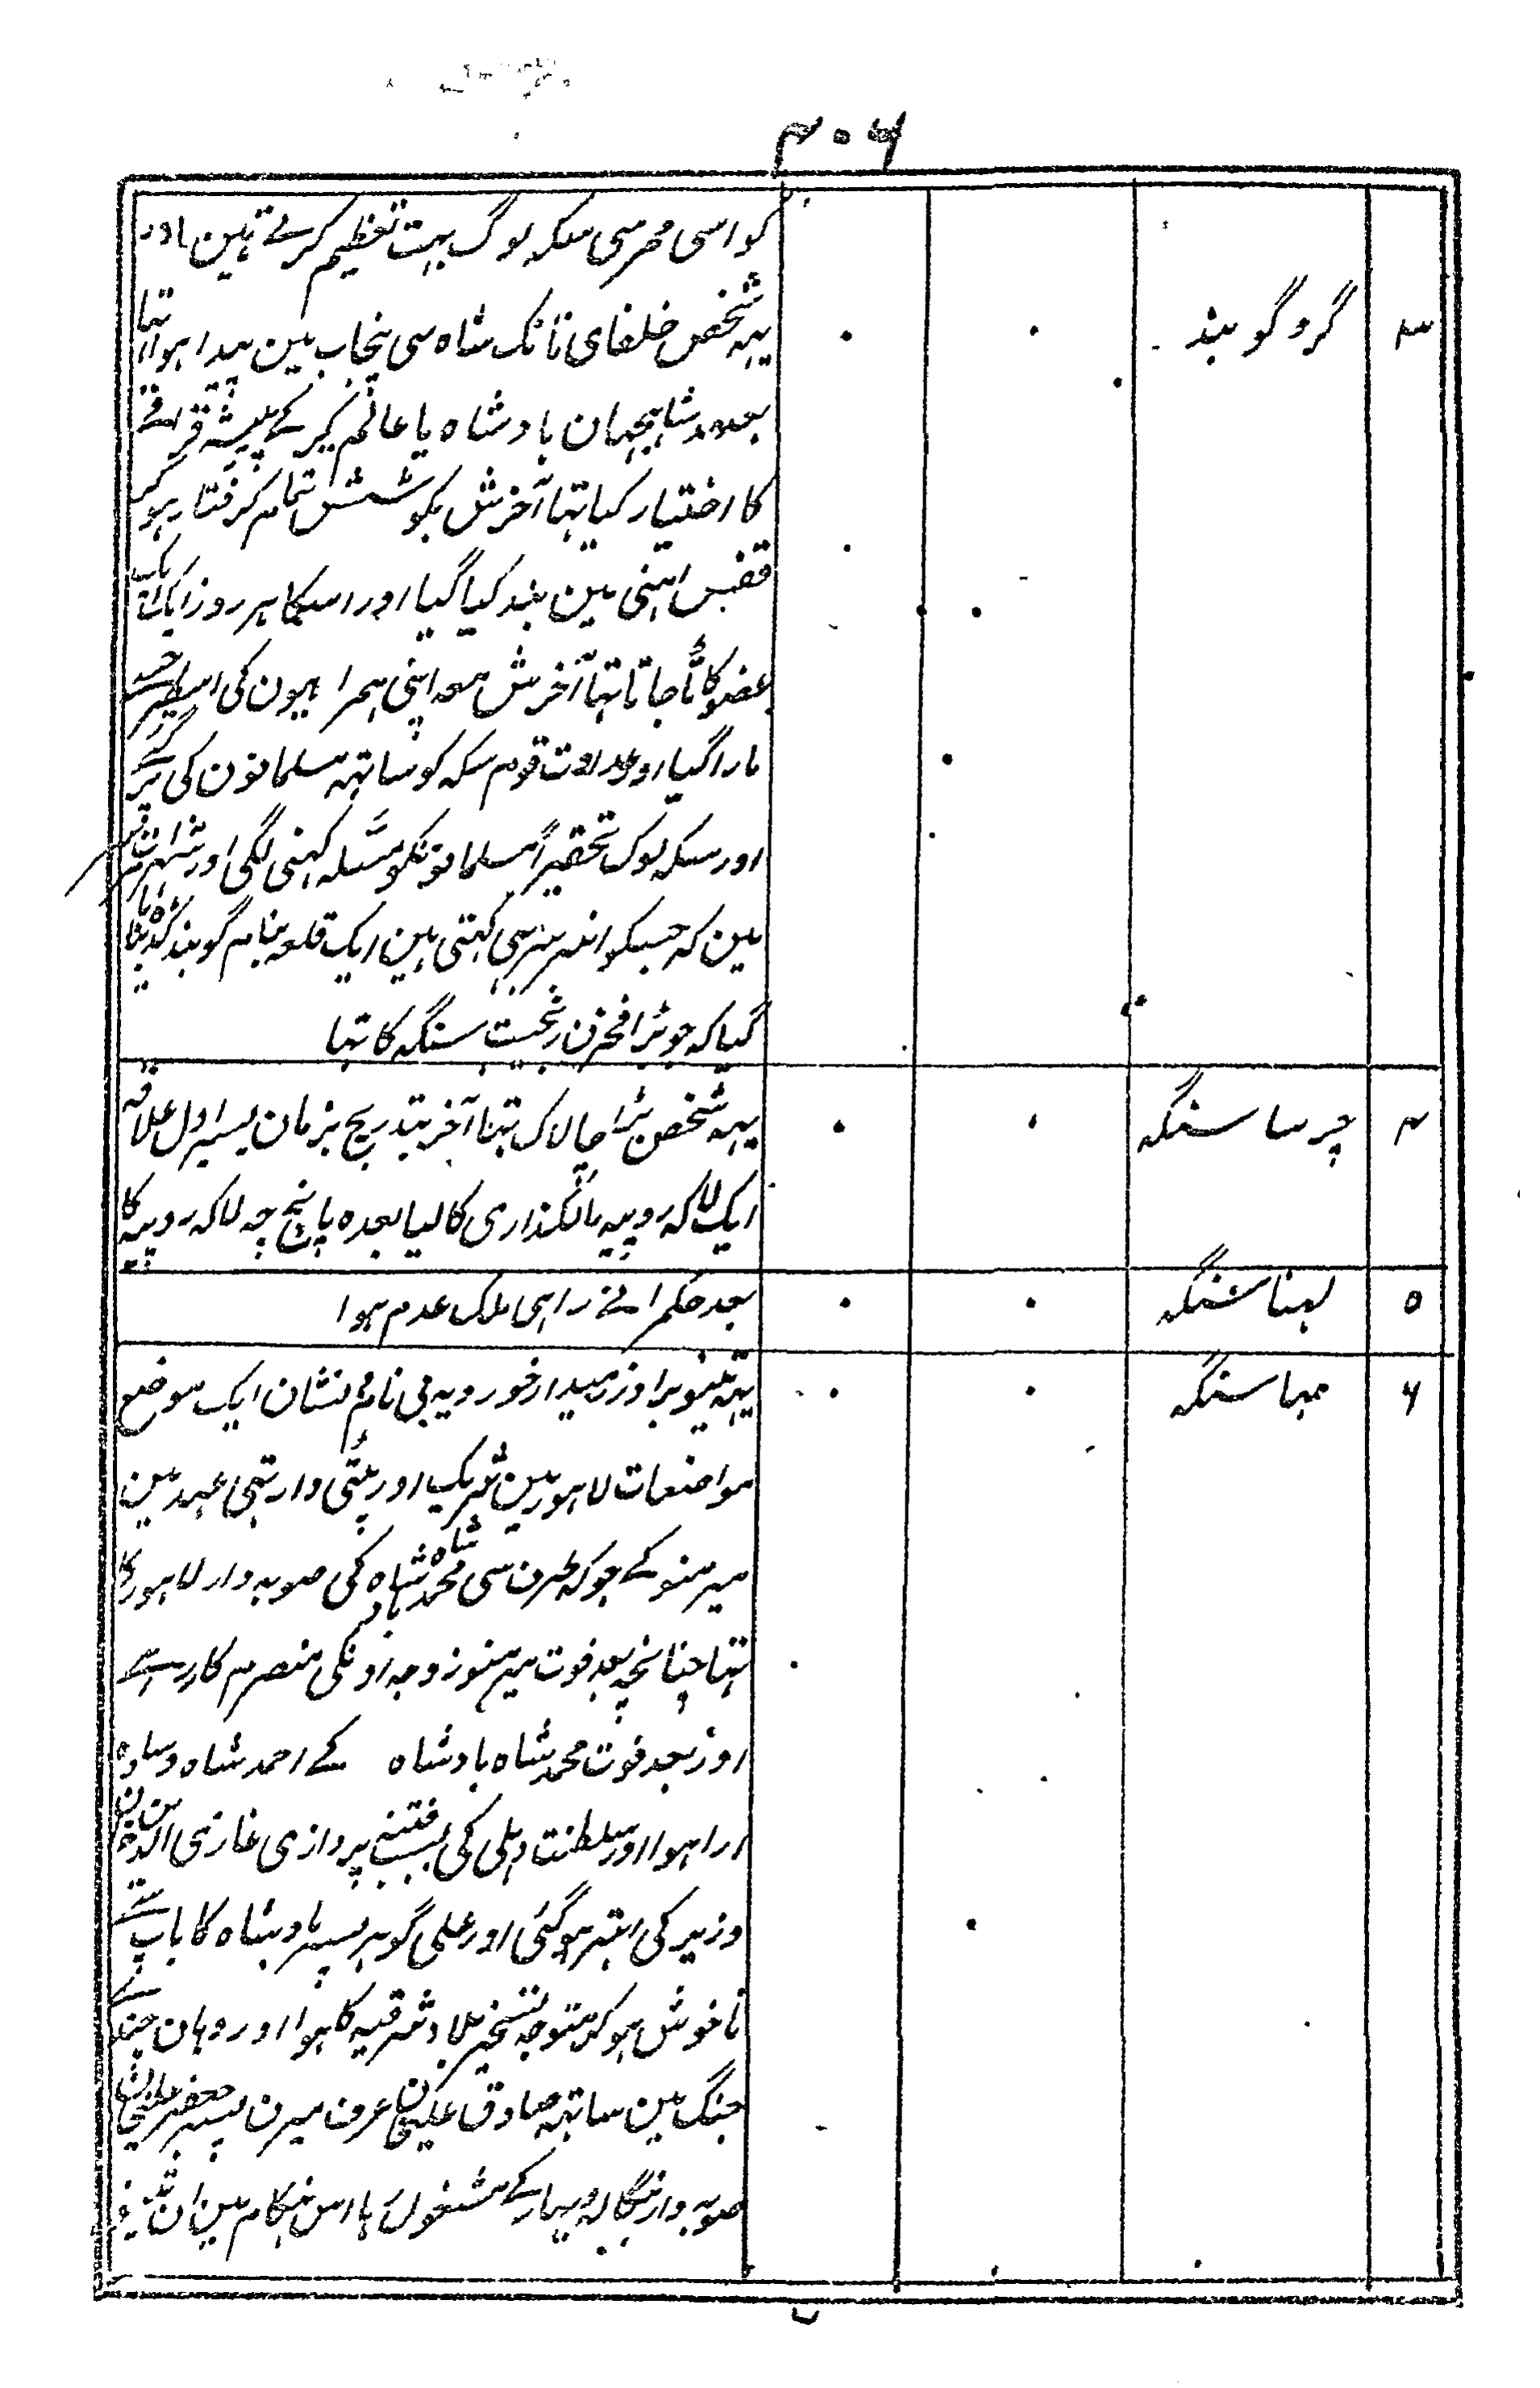 ۴۰۶
کو اسی محرسی سکہ لوگ بہت تعظیم کرتے ہین اور
۳ گرو گوبند ۰ ۰ یہہ شخص خلفای نانک شاہ سی پنجاب مین پیدا ہوا تہا
بعہد شاہجہان بادشاہ یا عالمگیر کے پیشہ قزاقے
کا اختیار کیا تہا آخرش بکوشش تمام گرفتار ہوکر
قفس اہنی مین بند کیا گیا اور اسکا ہر روز ایک ایک
عضو کاٹا جاتا تہا آخرش معہ اپنی ہمراہیون کی اسیطرحسے
مارا گیا اور عداوت قوم سکہ کو ساتہہ مسلمانون کی
اور سکہ لوگ تحقیراً مسلمانونکو مسلہ کہنی لگی اور شہر
مین کہ جسکو انبرسر بہی کہتی ہین ایک قلعہ بنام گوبند گڈہ بنایا
گیا کہ جو بڑا مخزن رنجیت سنگہ کا تہا
۴ چرسا سنگہ ۰ ۰ یہہ شخص بڑا چالاک تہا آخر بتدریج بزمان یسیر اول علاقہ
ایک لاکہہ روپیہ مالگذاری کا لیا بعدہ پانچ چہ لاکہ روپیہ کا
۵ لہنا سنگہ ۰ ۰ بعد حکمرانے راہی ملک عدم ہوا
۶ مہا سنگہ ۰ ۰ یہہ تینو برادر زمیدار خورویہ بی نام و نشان ایک موضع
مواضعات لاہور مین شریک اور پتی دار تہی عہد مین
میر منو کے جو کہ طرف سی محمد شاہ بادشاہ کی صوبہ دار لاہور کا
تہا چنانچہ بعد فوت میر منو زوجہ اونکی منصرم کار رہے
اور بعد فوت محمد شاہ بادشاہ کے احمد شاہ وسادہ
ارا ہوا اور سلطنت دہلی کی بسبب فتنہ پردازی غازی الدین خان
وزیر کی ابتر ہوگئی اور علی گوہر پسر بادشاہ کا باپ سے
ناخوش ہوکر متوجہ تسخیر بلاد شرقیہ کا ہوا اور وہان چندے
جنگ مین ساتہہ صادق علیخان عرف میرن پسر جعفر علیخان
صوبہ دار بنگالہ و بہار کے مشغول رہا اس ہنگام مین ان